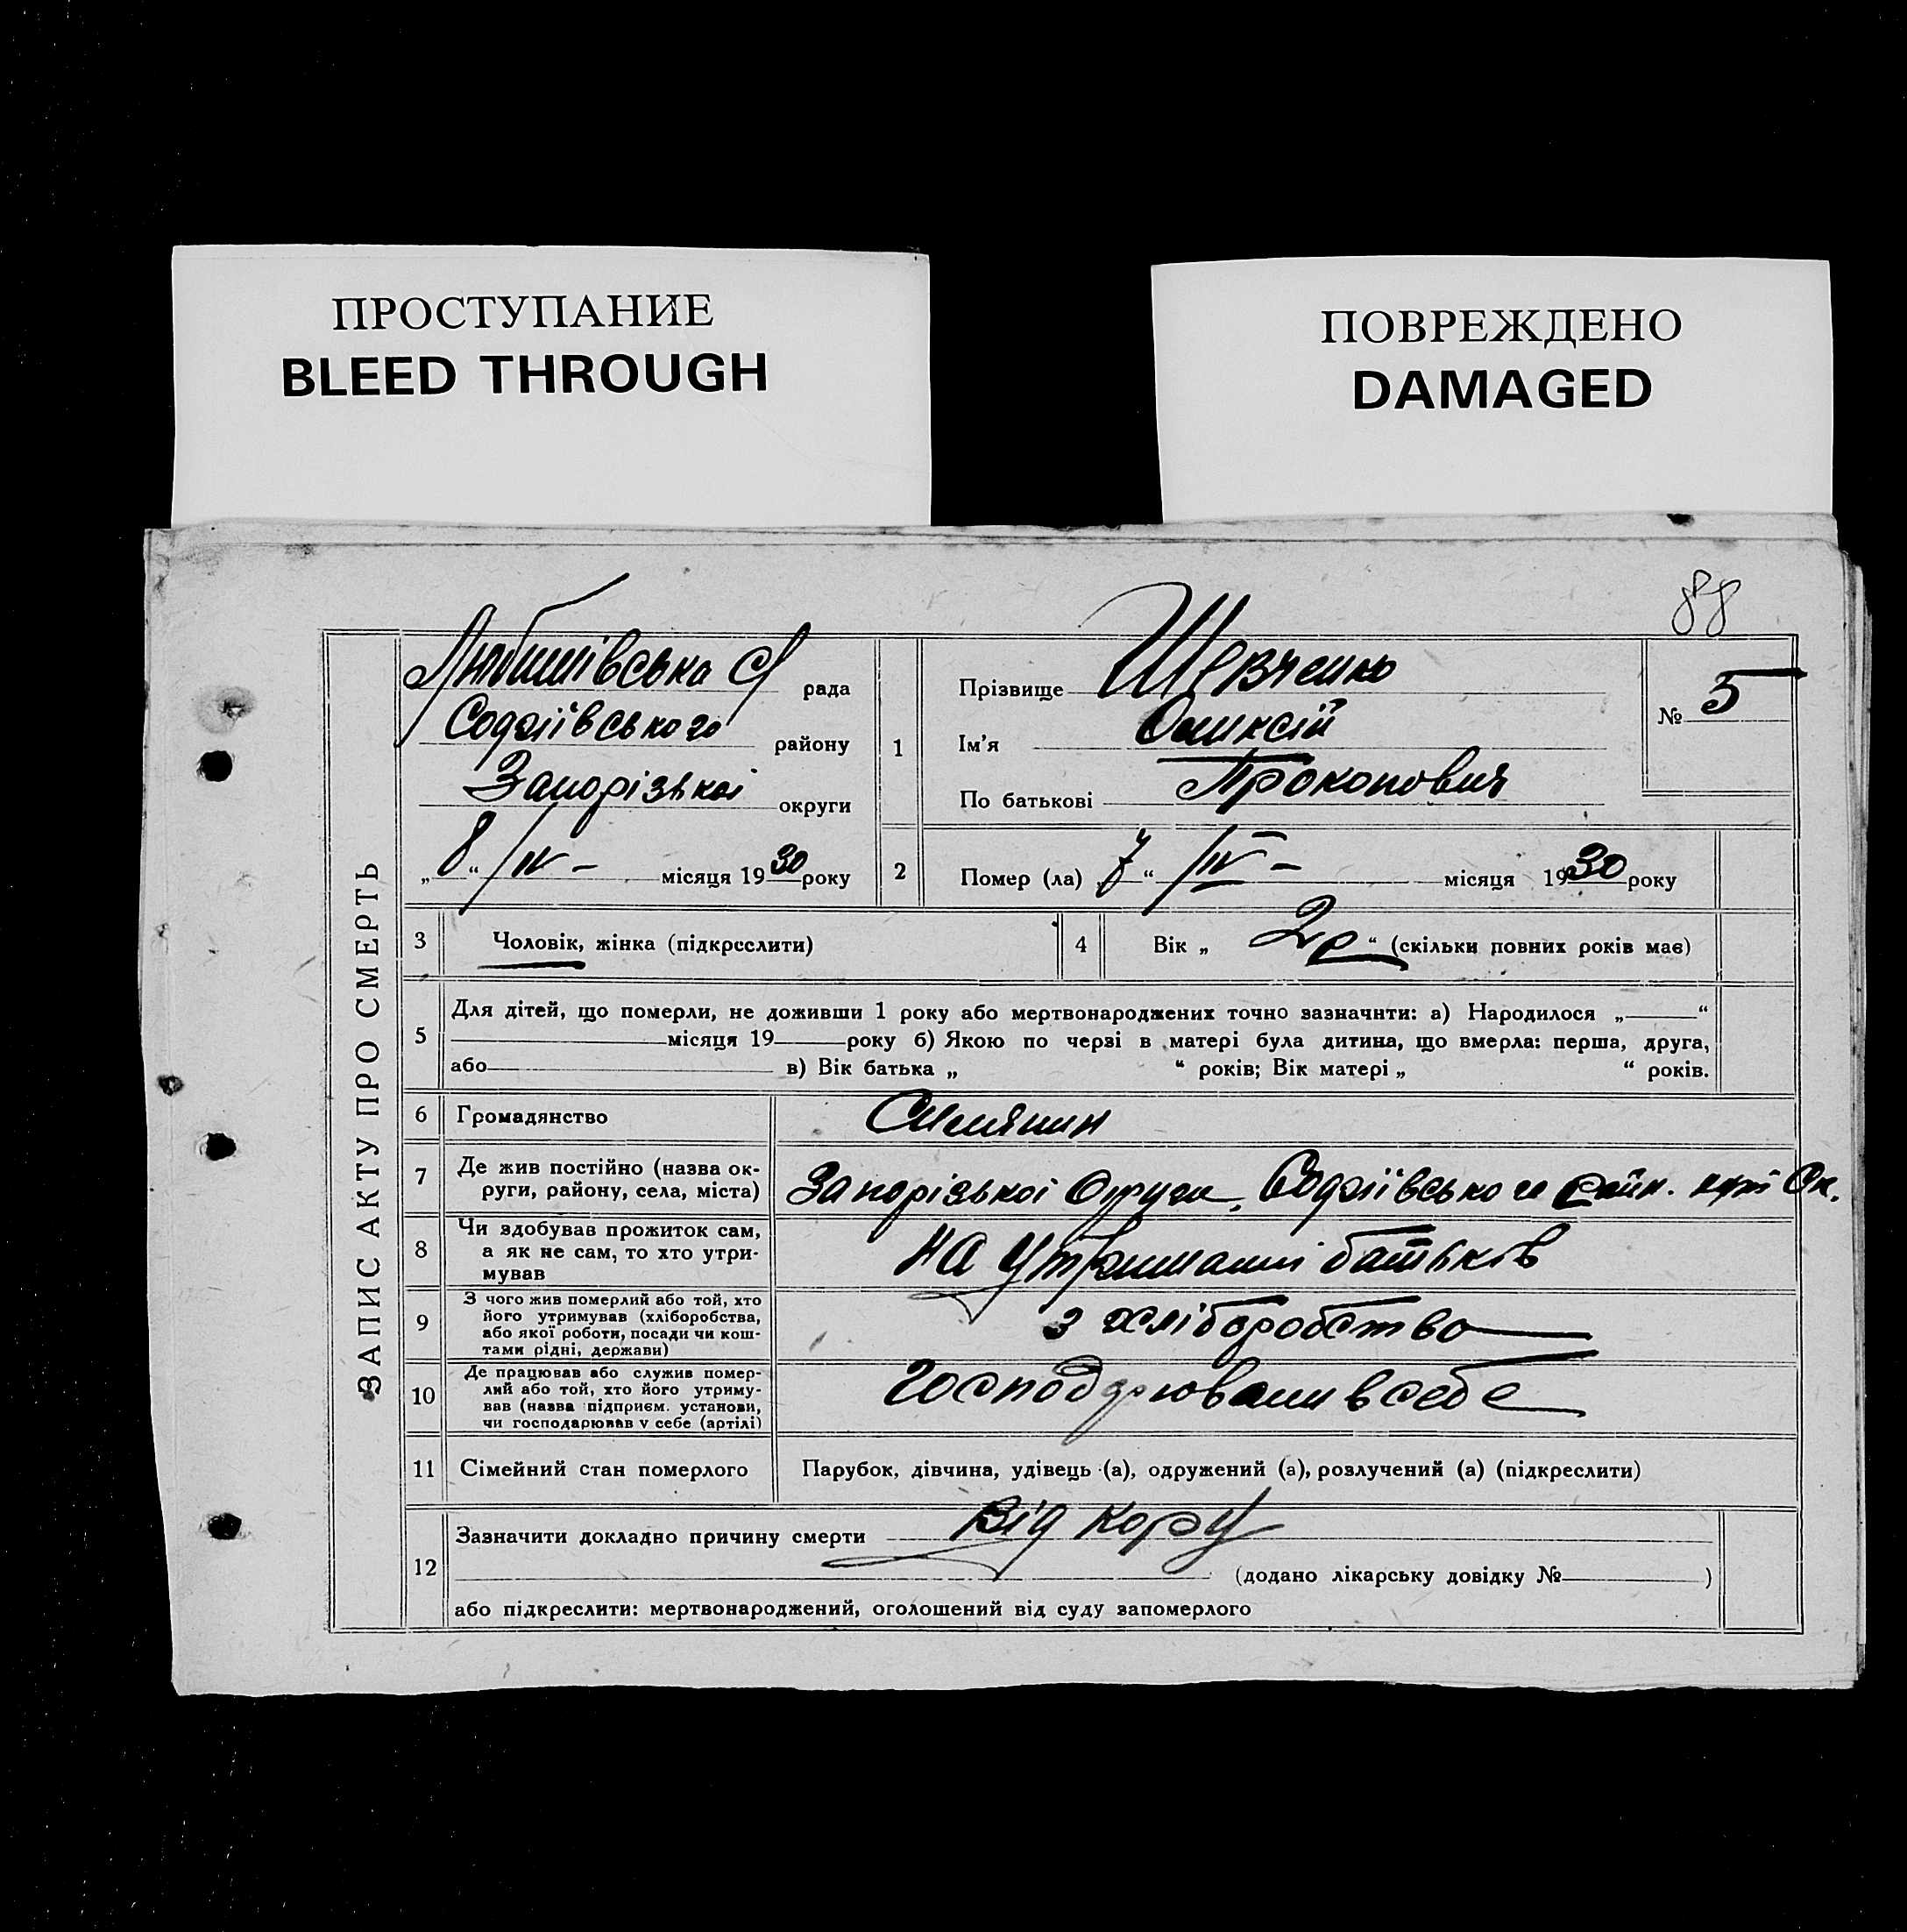 ПРОСТУПАНИЕ
BLEED THROUGH
ПОВРЕЖДЕНО
DAMAGED
88
ЗАПИС АКТУ ПРО СМЕРТЬ
Любимівська С/ рада
Софіївського району
Запорізької округи
„8“ /IV – місяця 1930 року
1
Прізвище Шевченко
Ім'я Олексій
По батькові Прокопович
№ 5
2 Помер (ла) 7“ /IV – місяця 1930 року
3 Чоловік, жінка (підкреслити)
4 Вік „ 2 р “ (скільки повних років має)
5 Для дітей, що померли, не доживши 1 року або мертвонароджених точно зазначити: а) Народилося „ “
місяця 19 року б) Якою по черзі в матері була дитина, що вмерла: перша, друга,
або в) Вік батька „ “ років; Вік матері „ “ років.
6 Громадянство Селянин
7 Де жив постійно (назва ок-
руги, району, села, міста) Запорізької Округи, Софіївського Району
8 Чи здобував прожиток сам,
а як не сам, то хто утри-
мував на утриманні батьків
9 З чого жив померлий або той, хто
його утримував (хліборобства,
або якої роботи, посади чи кош-
тами рідні, держави) з хліборобство
10 Де працював або служив помер-
лий або той, хто його утриму-
вав (назва підприєм. установи,
чи господарював у себе (артілі) в себе
11 Сімейний стан померлого Парубок, дівчина, удівець (а), одружений (а), розлучений (а) (підкреслити)
12 Зазначити докладно причину смерти Від кору
(додано лікарську довідку № )
або підкреслити: мертвонароджений, оголошений від суду запомерлого